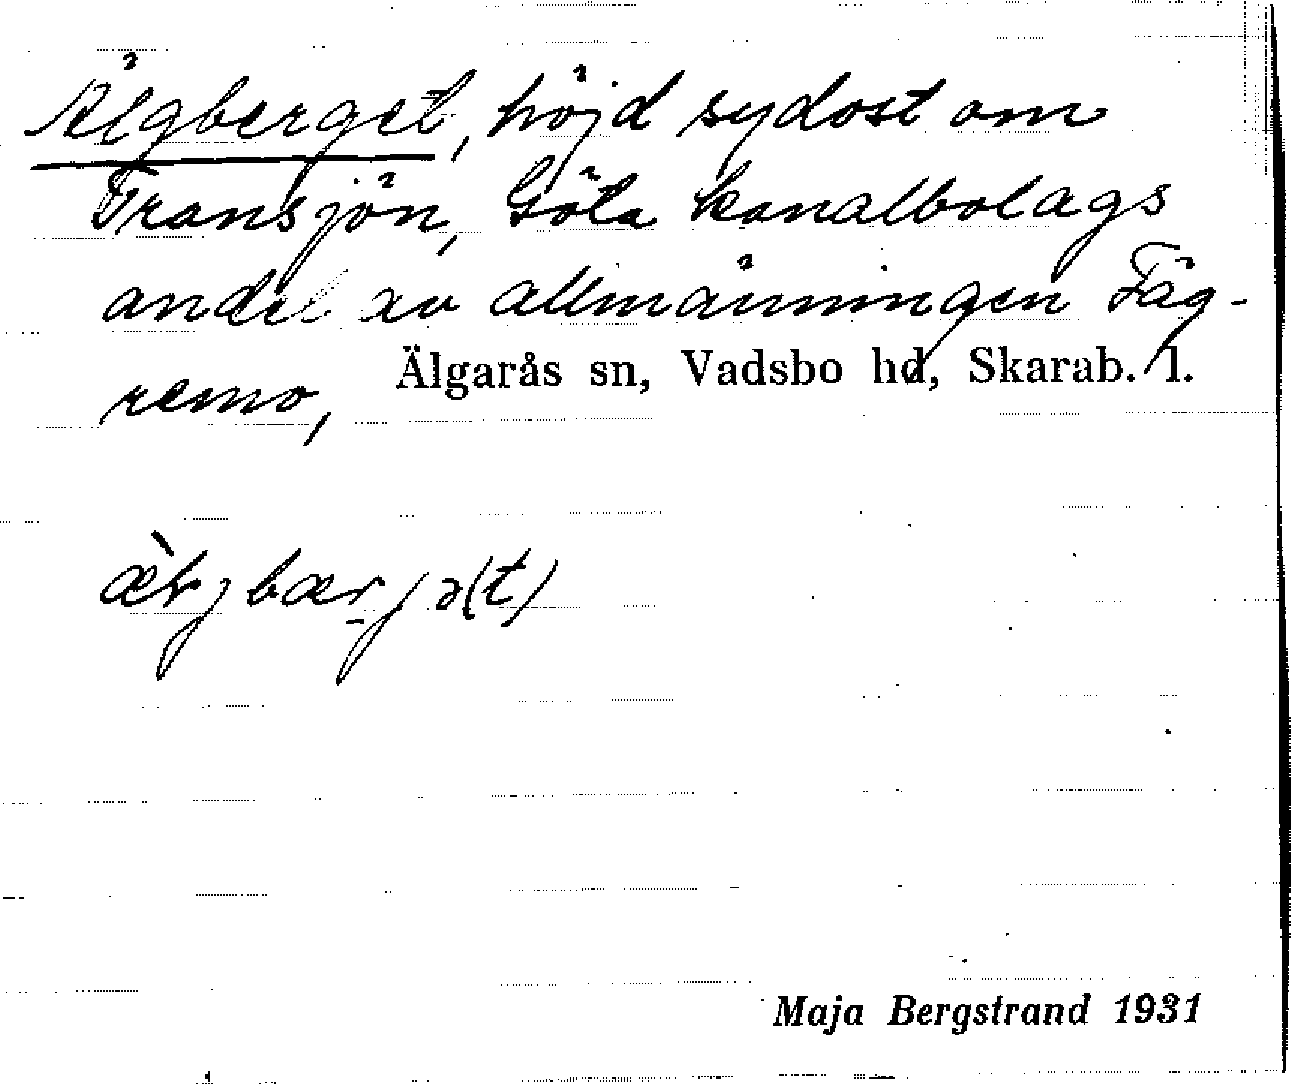 Älgberget, höjd sydost om
Transjön, Göta kanalbolags
andel av allmänningen Fäg-
remo, Älgarås sn, Vadsbo hd, Skarab. l.
Maja Bergstrand 1931